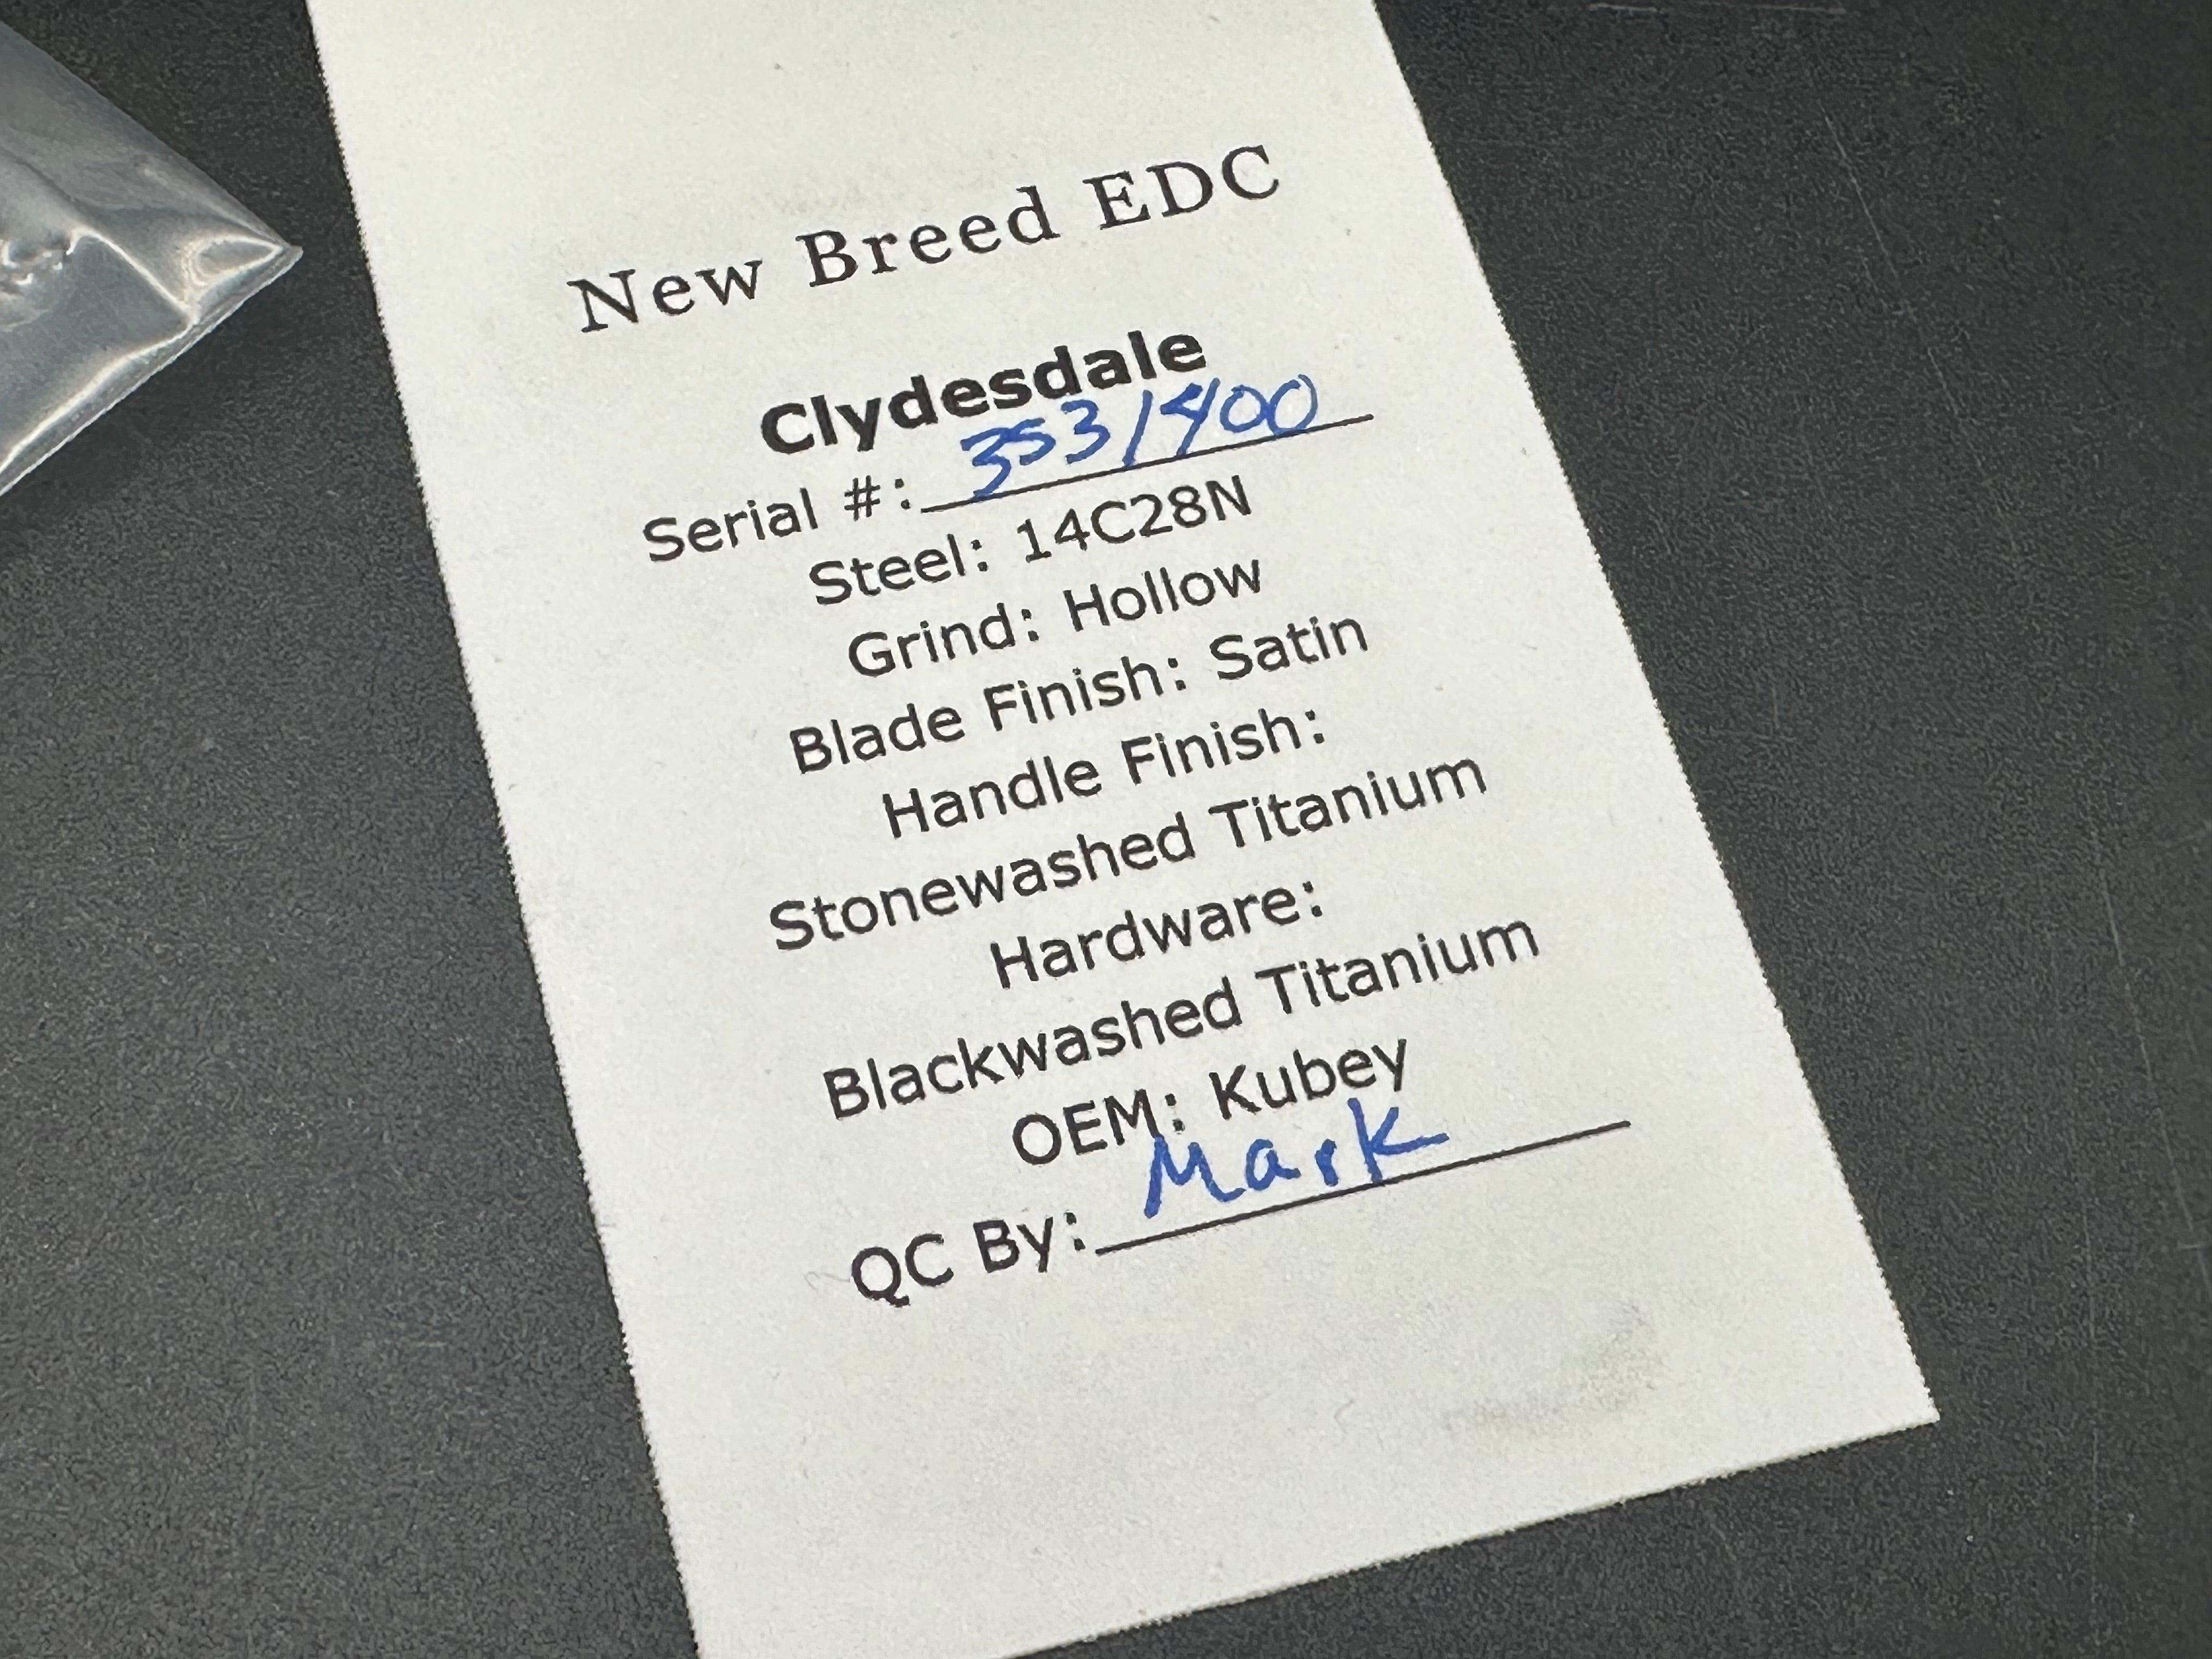 New Breed EDC
Clydesdale
Serial #: 353/400
Steel: 14C28N
Grind: Hollow
Blade Finish: Satin
Handle Finish:
Stonewashed Titanium
Hardware:
Blackwashed Titanium
OEM: Kubey
QC By: Mark